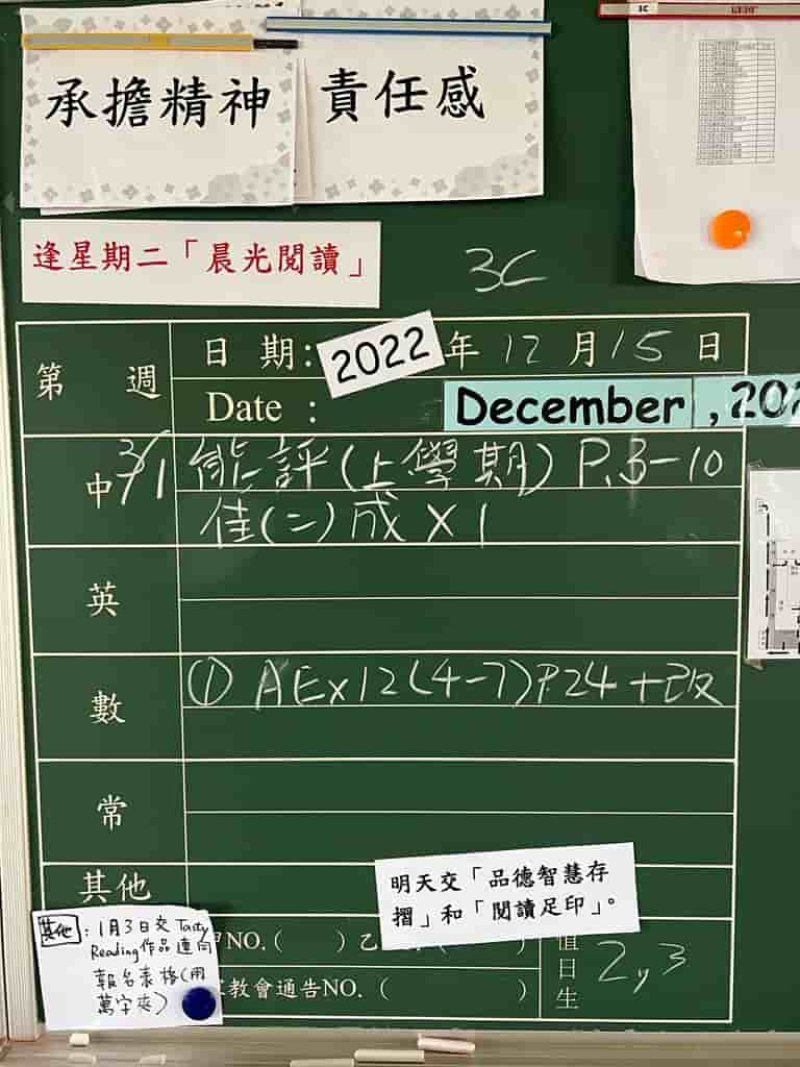 3C
承擔精神
責任感
逢星期二「晨光閱讀」
3C
第 週
日 期：2022 年 12 月 15 日
Date : December , 202
中
3/1 能評(上學期) P.3-10
佳(二)成 X 1
英
數
① AEx12(4-7)P.24+改
常
其他
明天交「品德智慧存
摺」和「閱讀足印」。
其他：1月3日交 Tasty
Reading作品連同
報名表格(用
萬字夾)
甲NO.( ) 乙
教會通告NO.( )
值日生
2,3